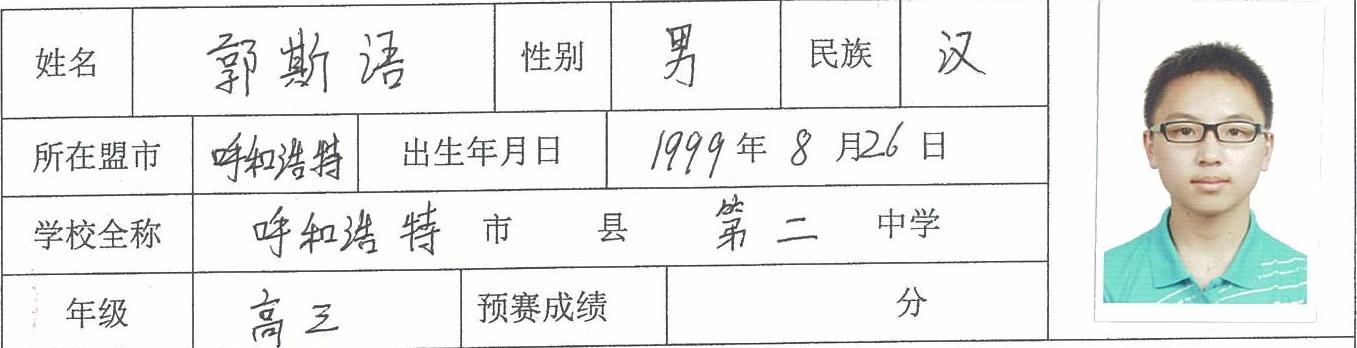 姓名 郭斯语 性别 男 民族 汉
所在盟市 呼和浩特 出生年月日 1999年8月26日
学校全称 呼和浩特 市 县 第二 中学
年级 高三 预赛成绩 分